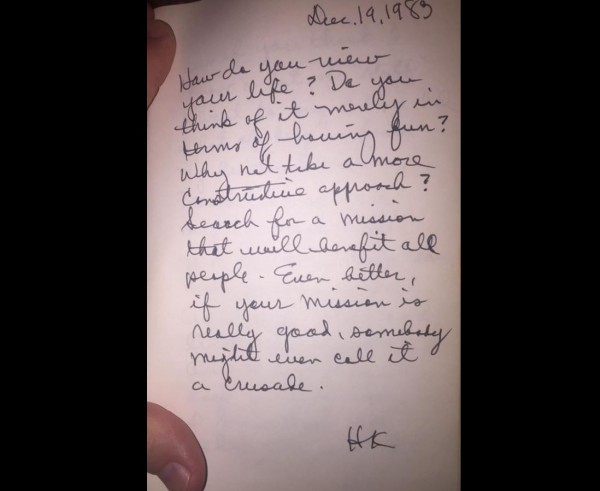 Dec. 19, 1983
How do you view
your life? Do you
think of it merely in
terms of having fun?
Why not take a more
constructive approach?
Search for a mission
that will benefit all
people. Even better,
if your mission is
really good, somebody
might even call it
a crusade.
HK